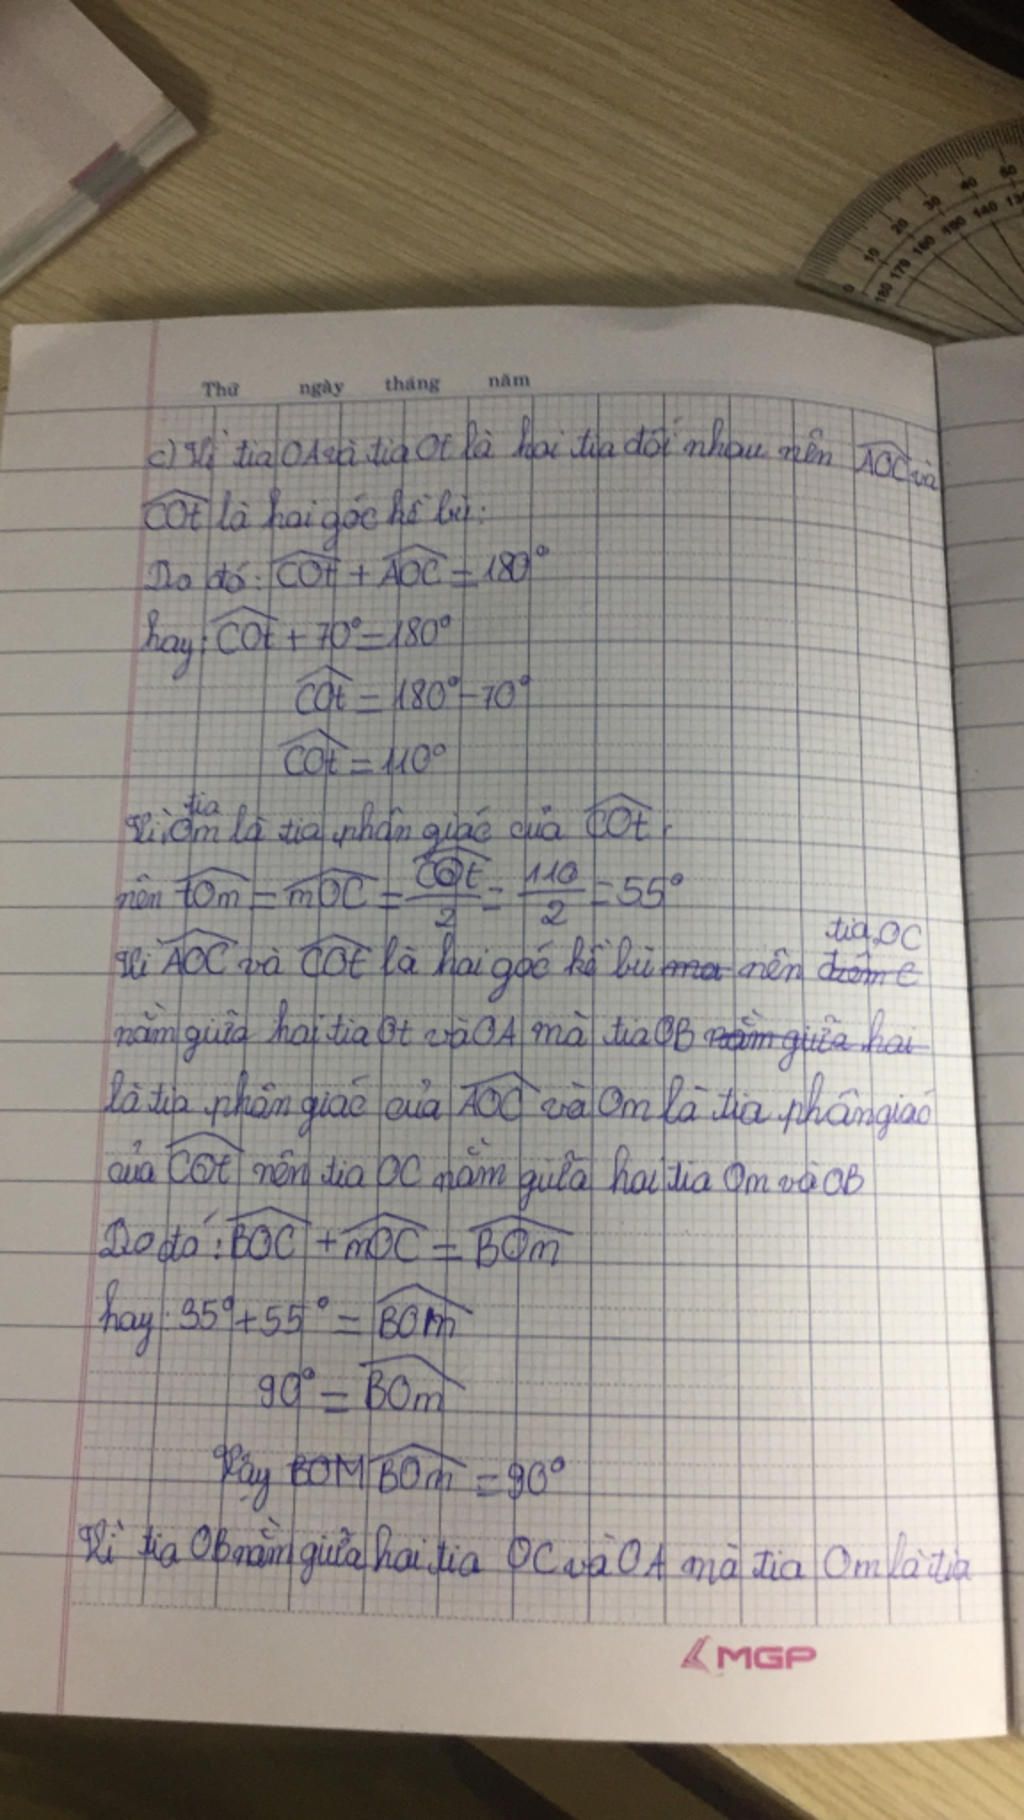 0 10 20 30 40 50
180 170 160 150 140 13
Thứ ngày tháng năm
c) Vì tia OA và tia Ot là hai tia đối nhau nên AOC và
COt là hai góc kề bù.
Do đó: COt + AOC = 180°
hay: COt + 70° = 180°
COt = 180° - 70°
COt = 110°
Vì tia Om là tia phân giác của COt.
nên tOm = mOC = COt/2 = 110/2 = 55°
Vì AOC và COt là hai góc kề bù nên tia OC
nằm giữa hai tia Ot và OA mà tia OB nằm giữa hai
là tia phân giác của AOC và Om là tia phân giác
của COt nên tia OC nằm giữa hai tia Om và OB
Do đó: BOC + mOC = BOm
hay: 35° + 55° = BOm
90° = BOm
Vậy BOM BOm = 90°
Vì tia OB nằm giữa hai tia OC và OA mà tia Om là tia
MGP